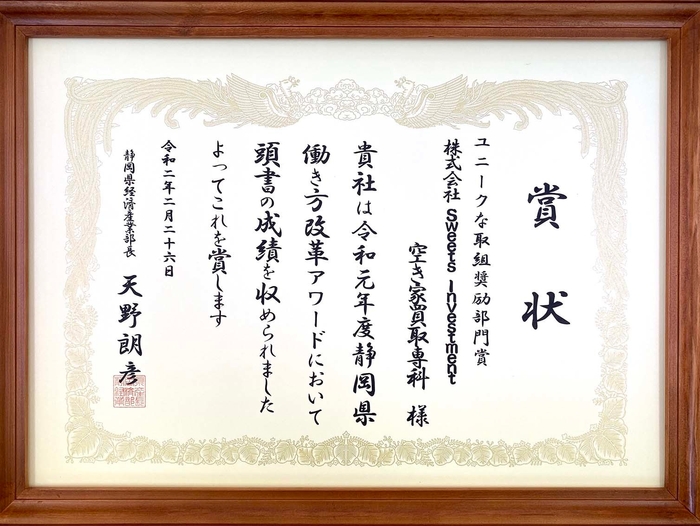 賞状
ユニークな取組奨励部門賞
株式会社 Sweets Investment
空き家買取専科 様
貴社は令和元年度静岡県
働き方改革アワードにおいて
頭書の成績を収められました
よってこれを賞します
令和二年二月二十六日
静岡県経済産業部長 天野朗彦